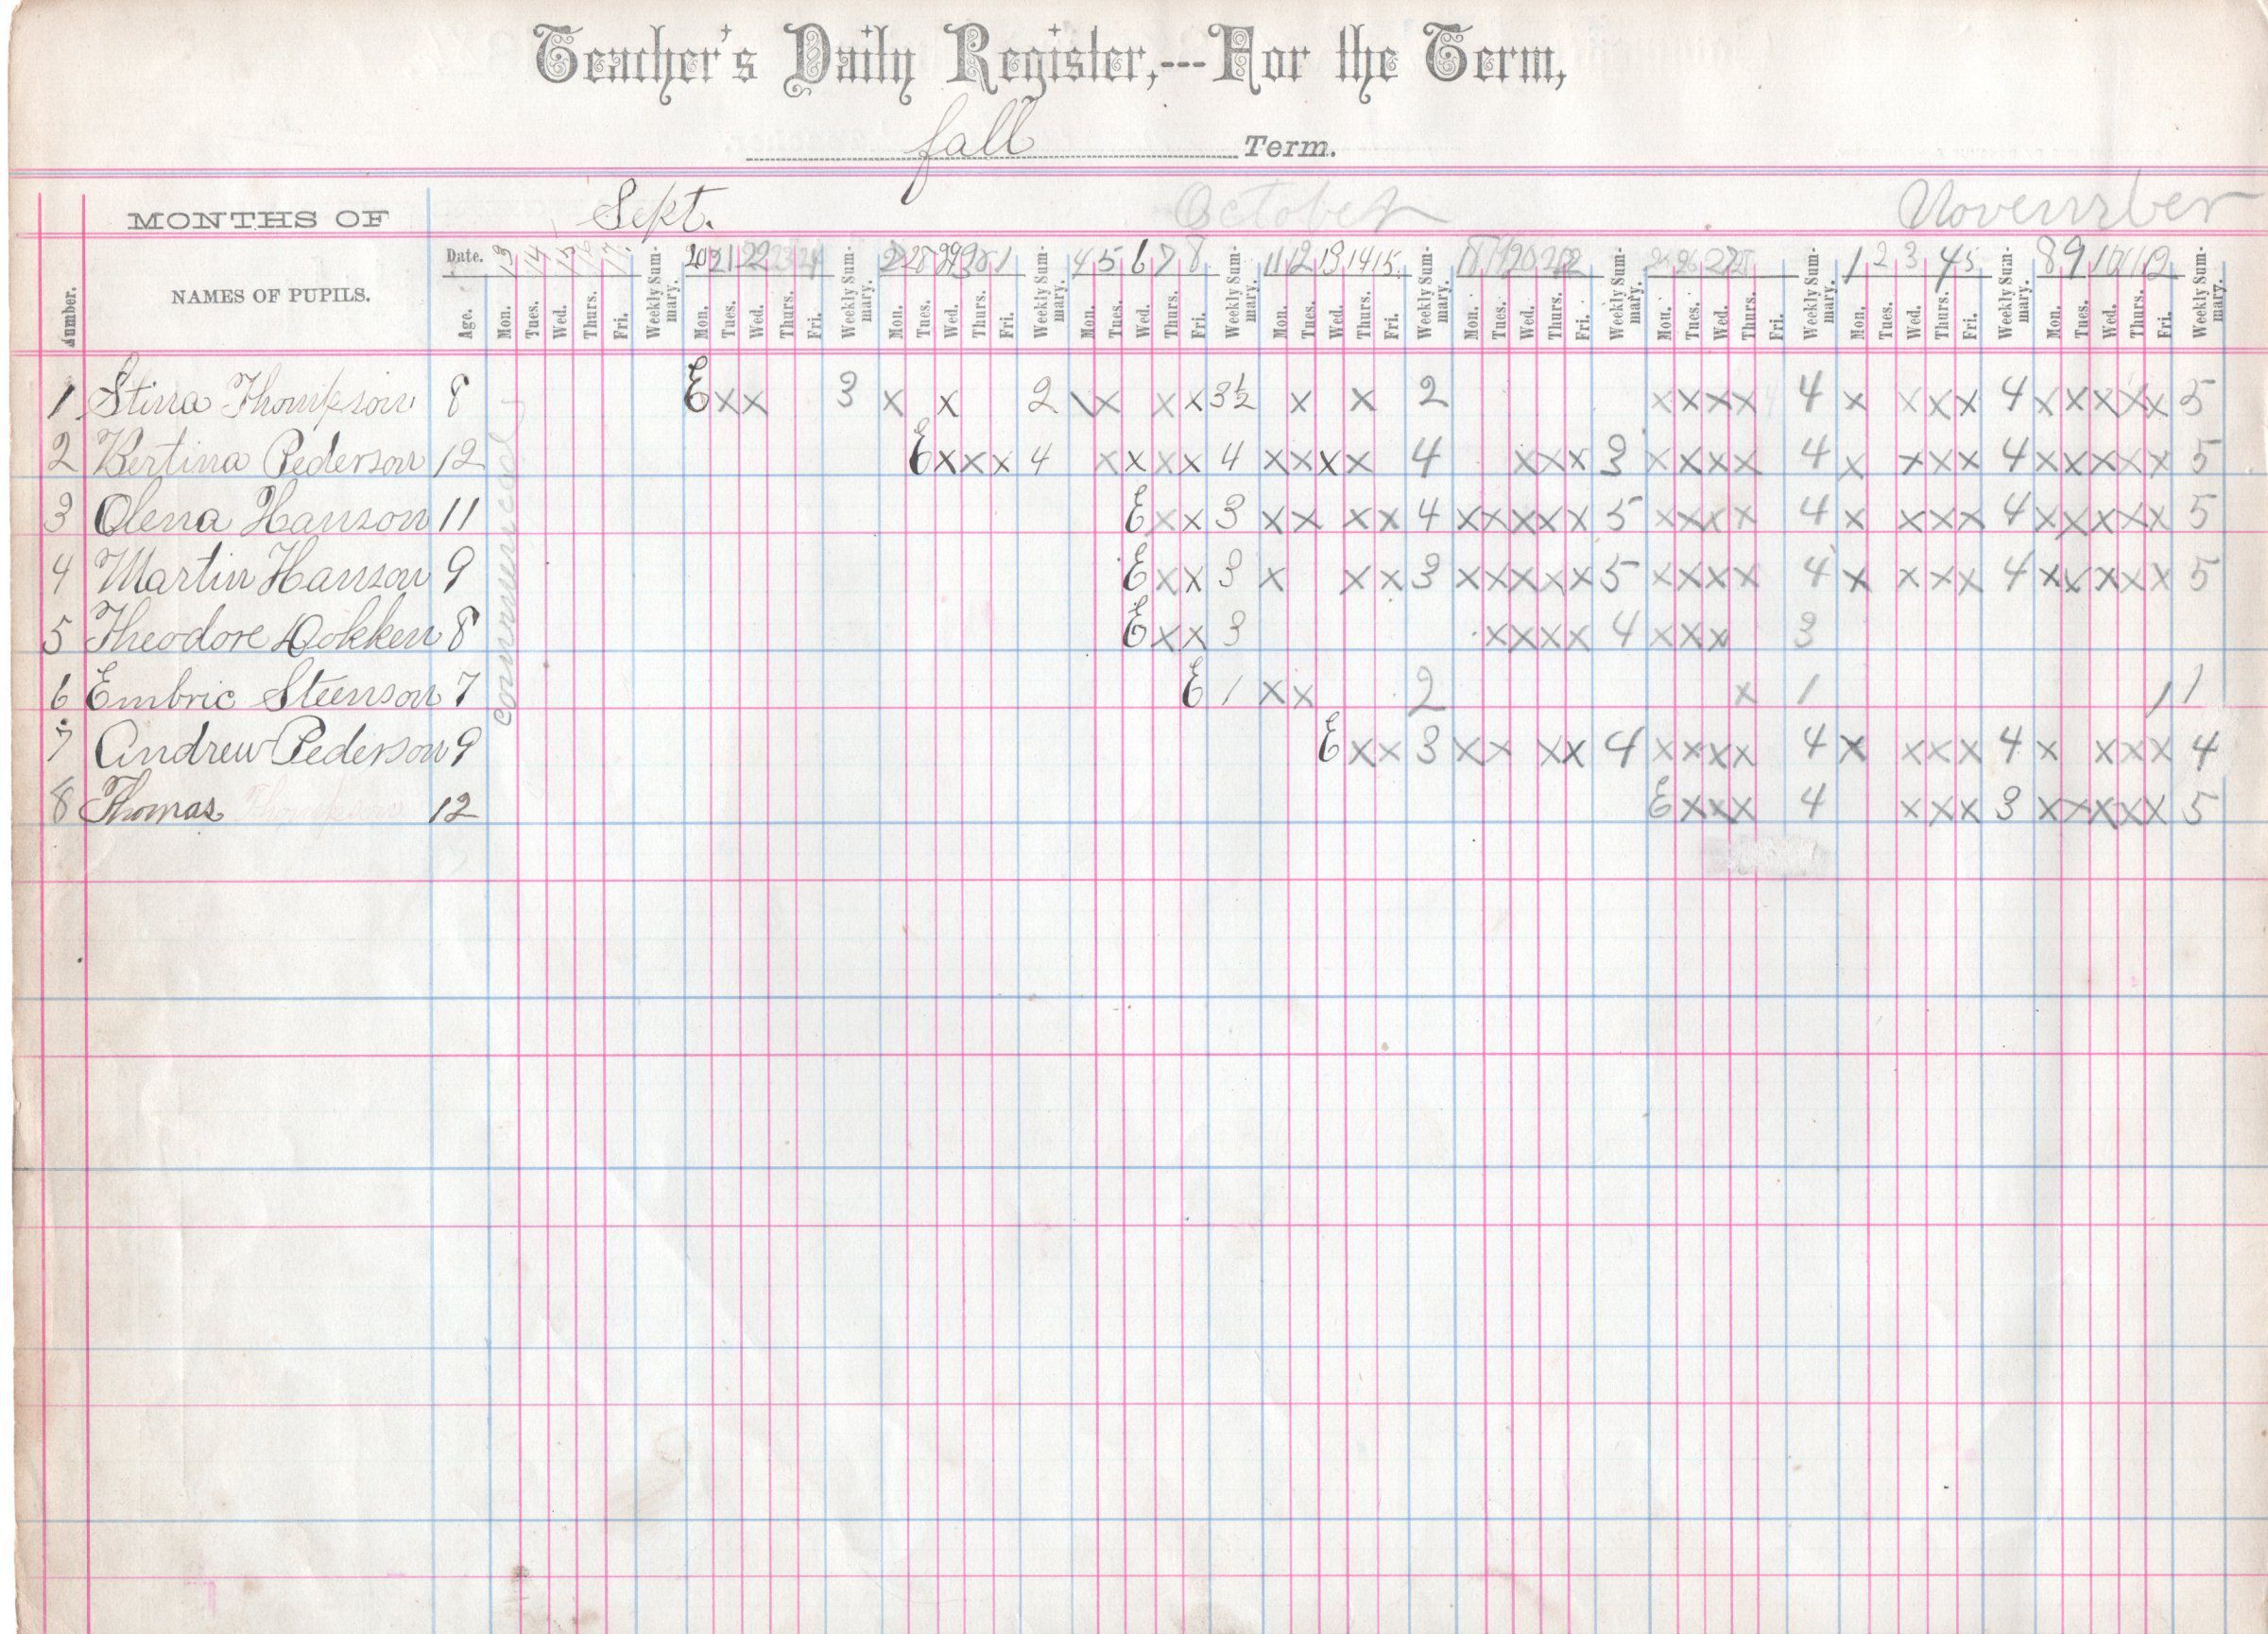 Teacher's Daily Register,---For the Term,
fall Term.
MONTHS OF Sept. October November
Number. NAMES OF PUPILS. Age. Date. 13 14 15 16 17 20 21 22 23 24 27 28 29 30 1 4 5 6 7 8 11 12 13 14 15 18 19 20 21 22 25 26 27 28 1 2 3 4 5 8 9 10 11 12
Mon. Tues. Wed. Thurs. Fri. Weekly Summary. Mon. Tues. Wed. Thurs. Fri. Weekly Summary. Mon. Tues. Wed. Thurs. Fri. Weekly Summary. Mon. Tues. Wed. Thurs. Fri. Weekly Summary. Mon. Tues. Wed. Thurs. Fri. Weekly Summary. Mon. Tues. Wed. Thurs. Fri. Weekly Summary. Mon. Tues. Wed. Thurs. Fri. Weekly Summary. Mon. Tues. Wed. Thurs. Fri. Weekly Summary. Mon. Tues. Wed. Thurs. Fri. Weekly Summary.
commenced
1 Stina Thompson 8 E x x 3 x x 2 x x x x 3½ x x 2 x x x x 4 x x x x 4 x x x x x 5
2 Bertina Pederson 12 E x x x 4 x x x x 4 x x x x 4 x x x 3 x x x x 4 x x x x 4 x x x x x 5
3 Olena Hanson 11 E x x 3 x x x x 4 x x x x x 5 x x x x 4 x x x x 4 x x x x x 5
4 Martin Hanson 9 E x x 3 x x x 3 x x x x x 5 x x x x 4 x x x x 4 x x x x x 5
5 Theodore Dokken 8 E x x 3 x x x x 4 x x x 3
6 Embric Steenson 7 E 1 x x 2 x 1 1 1
7 Andrew Pederson 9 E x x 3 x x x x 4 x x x x 4 x x x x 4 x x x x 4
8 Thomas Thompson 12 E x x x 4 x x x 3 x x x x x 5